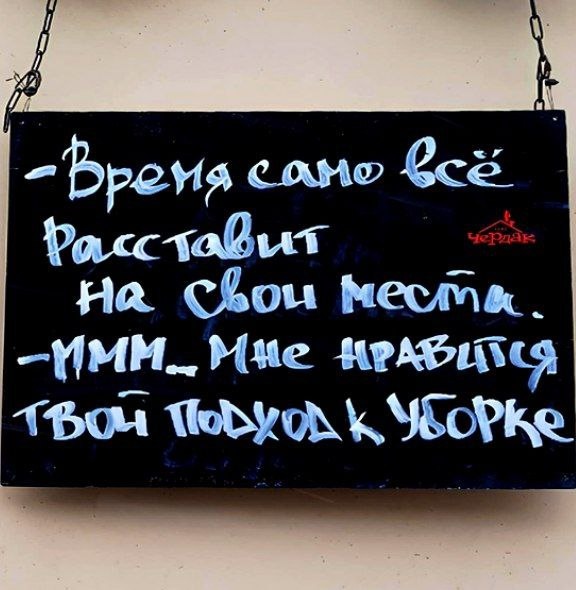 - Время само всё
расставит
на свои места.
- МММ... Мне нравится
твой подход к уборке
чердак